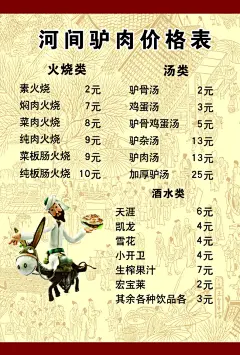 河间驴肉价格表
火烧类
素火烧 2元
焖肉火烧 7元
菜肉火烧 8元
纯肉火烧 9元
菜板肠火烧 9元
纯板肠火烧 10元
汤类
驴骨汤 2元
鸡蛋汤 3元
驴骨鸡蛋汤 5元
驴杂汤 13元
驴肉汤 13元
加厚驴汤 25元
酒水类
天涯 6元
凯龙 4元
雪花 4元
小开卫 4元
生榨果汁 7元
宏宝莱 2元
其余各种饮品各 3元